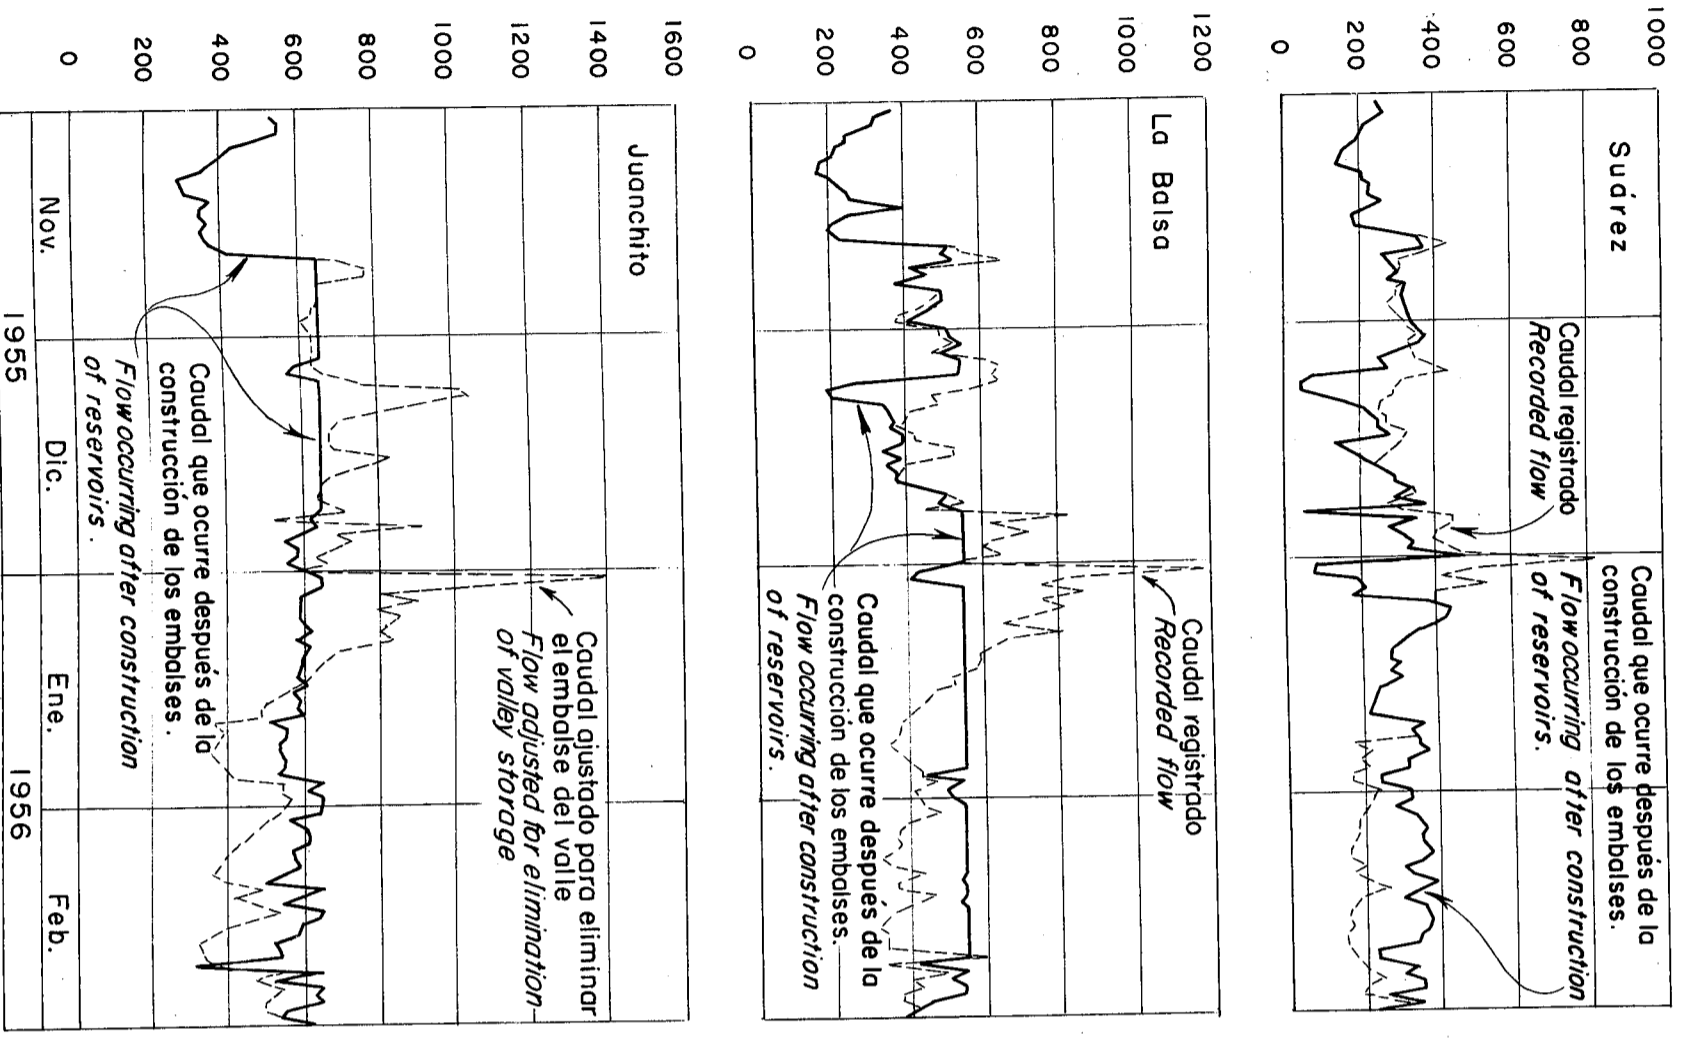 Suárez
1000
800
600
400
200
0
Caudal registrado
Recorded flow
Caudal que ocurre después de la
construcción de los embalses.
Flow occurring after construction
of reservoirs.
La Balsa
1200
1000
800
600
400
200
0
Caudal registrado
Recorded flow
Caudal que ocurre después de la
construcción de los embalses.
Flow occurring after construction
of reservoirs.
Juanchito
1600
1400
1200
1000
800
600
400
200
0
Caudal ajustado para eliminar
el embalse del valle
Flow adjusted for elimination
of valley storage
Caudal que ocurre después de la
construcción de los embalses.
Flow occurring after construction
of reservoirs.
Nov.
Dic.
Ene.
Feb.
1955
1956